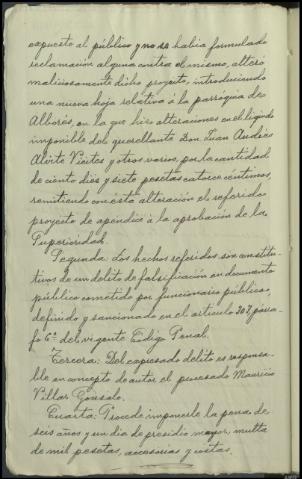 expuesto al público y no se había formulado
reclamación alguna contra el mismo, alteró
maliciosamente dicho proyecto, introduciendo
una nueva hoja relativa á la parroquia de
Albores, en la que hizo alteraciones en el líquido
imponible del querellante Don Juan Andrés
y otros varios, por la cantidad
de ciento diez y siete pesetas catorce céntimos,
remitiendo con ésta alteración el referido
proyecto de apendice á la aprobación de la
Superioridad.
Segunda: Los hechos referidos son constitu-
tivos de un delito de falsificación en documento
público cometido por funcionario público,
definido y sancionado en el artículo 307, párra-
fo 6º del vigente Código Penal.
Tercera: Del expresado delito es responsa-
ble en concepto de autor el procesado Mauricio
Villar
Cuarta: Procede imponerle la pena de
seis años y un dia de presidio mayor, multa
de mil pesetas, accesorias y costas.